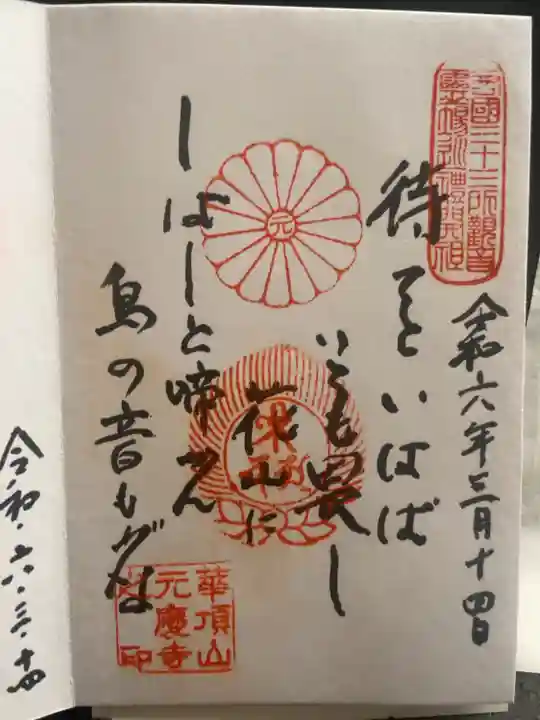 西國三十三所觀音
令和六年三月十四日
待てといはば
いとも畏し
花山に
しばしと啼かん
鳥の音もがな
元
華頂山
元慶寺
之印
令和・六・三・十四